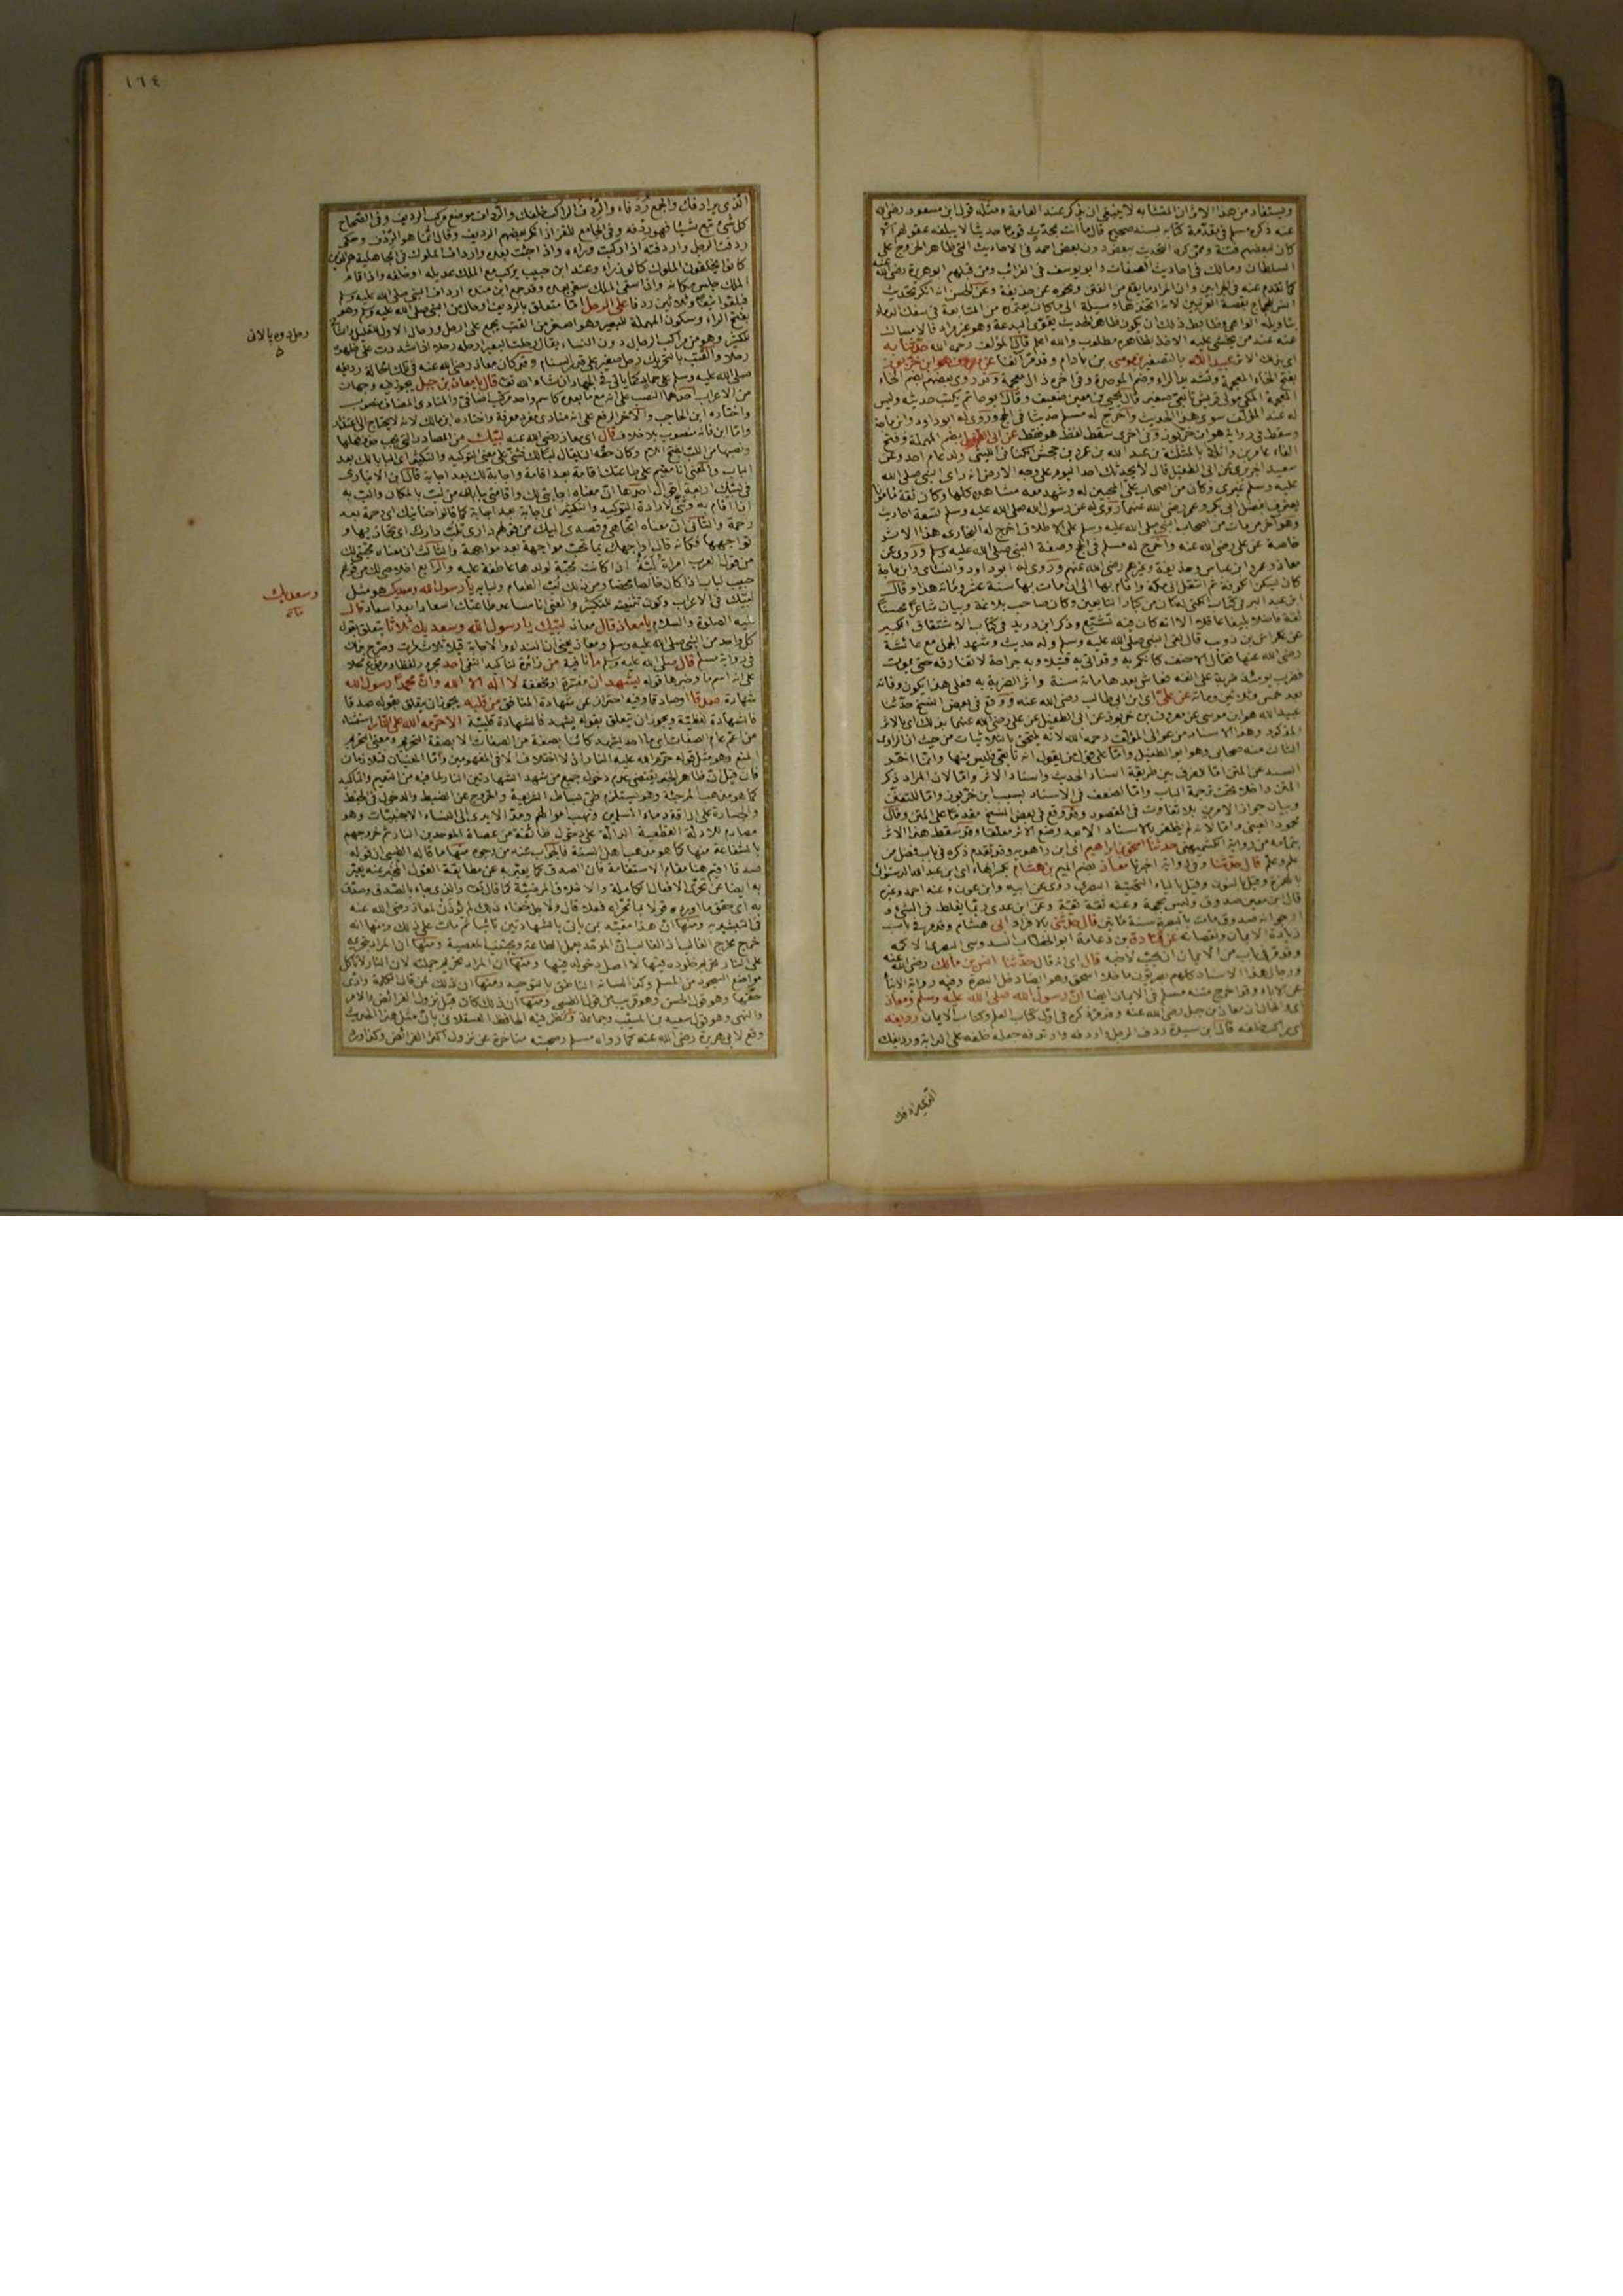 ويستفاد من هذا الاثر ان المتشابه لا ينبغى ان يذكر عند العامة ومثله قول ابن مسعود رضى الله
عنه ذكره مسلم فى مقدمة كتابه بسند صحيح قال ما انت بمحدث قوما حديثا لا يبلغه عقولهم الا
كان لبعضهم فتنة وممن كره التحديث ببعض دون بعض احمد فى الاحاديث التى ظاهرها الخروج على
السلطان ومالك فى احاديث الصفات وابو يوسف فى الغرائب ومن قبلهم ابو هريرة رضى الله عنه
كما تقدم عنه فى الجرابين وان المراد ما يقع من الفتن ونحوه عن حذيفة وعن الحسن انه انكر تحديث
انس للحجاج بقصة العرنيين لانه اتخذها وسيلة الى ما كان يعتمده من المبالغة فى سفك الدماء
بتأويله الواهى وضابط ذلك ان يكون ظاهر الحديث يقوى البدعة وظاهره غير مراد فالامساك
عنه عند من يخشى عليه الاخذ بظاهره مطلوب والله اعلم قال المؤلف رحمه الله حدثنا به
اى بذلك الاثر عبيد الله بالتصغير بن موسى بن باذام وقد مر آنفا عن معروف هو ابن خربوذ
بفتح الخاء المعجمة وتشديد الراء وضم الموحدة وفى اخره ذال معجمة وقد روى بعضهم بضم الخاء
المعجمة المكى مولى قريش تابعى صغير قال يحيى بن معين ضعيف وقال ابو حاتم يكتب حديثه وليس
له عند المؤلف سوى هذا الحديث واخرج له مسلم حديثا فى الحج وروى له ابو داود وابن ماجة
وسقط فى رواية هو ابن خربوذ وفى اخرى سقط لفظ هو فقط عن ابى الطفيل بضم المهملة وفتح
الفاء عامر بن واثلة بالمثلثة بن عبد الله بن عمرو بن جحش الكنانى الليثى ولد عام احد وعن
سعيد الجريرى عن ابى الطفيل قال لا يحدثك احد اليوم على وجه الارض انه رأى النبى صلى الله
عليه وسلم غيرى وكان من اصحاب على المحبين له وشهد معه مشاهده كلها وكان ثقة مأمونا
يعترف بفضل ابى بكر وعمر رضى الله عنهما روى له عن رسول الله صلى الله عليه وسلم تسعة احاديث
وهو آخر من مات من اصحاب النبى صلى الله عليه وسلم على الاطلاق اخرج له البخارى هذا الاثر
خاصة عن على رضى الله عنه واخرج له مسلم فى الحج وصفة النبى صلى الله عليه وسلم وروى عن
معاذ وعمر وابن عباس وحذيفة وغيرهم رضى الله عنهم وروى له ابو داود والنسائى وابن ماجة
كان يسكن الكوفة ثم انتقل الى مكة واقام بها الى ان مات بها سنة عشر ومائة هذا وقال
ابن عبد البر فى كتاب الكنى له كان من كبار التابعين وكان صاحب بلاغة وبيان شاعرا محسنا
ثقة فاضلا بليغا عاقلا الا انه كان فيه تشيع وذكر ابن دريد فى كتاب الاشتقاق الكبير
عن عكراش بن ذويب قال لقى النبى صلى الله عليه وسلم وله حديث وشهد الجمل مع عائشة
رضى الله عنها فقال الاحنف كانكم به وقد اتى به قتيلا وبه جراحة لا تفارقه حتى يموت
فضرب يومئذ ضربة على انفه فعاش بعدها مائة سنة واثر الضربة به فعلى هذا يكون وفاته
بعد خمس وثلاثين ومائة عن على اى ابن ابى طالب رضى الله عنه ووقع فى بعض النسخ حدثنا
عبيد الله هو ابن موسى عن معروف بن خربوذ عن ابى الطفيل عن على رضى الله عنهما بذلك اى بالاثر
المذكور وهذا الاسناد من عوالى المؤلف رحمه الله لانه يلتحق بالثلاثيات من حيث ان الراوى
الثالث منه صحابى وهو ابو الطفيل واما على قول من يقول انه تابعى فليس منها وانما اخر
السند عن المتن اما للفرق بين طريقة اسناد الحديث واسناد الاثر واما لان المراد ذكر
المتن داخلا تحت ترجمة الباب واما لضعف فى الاسناد بسبب ابن خربوذ واما للتفنن
وبيان جواز الامرين بلا تفاوت فى المقصود وقد وقع فى بعض النسخ مقدما على المتن وقال
محمود العينى واما لانه لم يظفر بالاسناد الا بعد وضع الاثر معلقا وقد سقط هذا الاثر
بتمامه من رواية الكشميهنى حدثنا اسحق بن ابراهيم اى ابن راهويه وقد تقدم ذكره فى باب فضل من
علم وعلم قال حدثنا وفى رواية اخبرنا معاذ بضم الميم بن هشام بكسر الهاء اى ابن عبد الله الدستوائى
بالهمزة وقيل بالنون وقيل بالياء التحتية البصرى روى عن ابيه وابن عون وعنه احمد وغيره
قال ابن معين صدوق وليس بحجة وعنه ثقة ثقة وعن ابن عدى ربما يغلط فى الشىء و
ارجو انه صدوق مات بالبصرة سنة مائتين قال حدثنى بالافراد ابى هشام وقد مر فى باب
زيادة الايمان ونقصانه عن قتادة بن دعامة ابو الخطاب السدوسى البصرى الاكمه
وقد مر فى باب من الايمان ان يحب لاخيه قال اى انه قال حدثنا انس بن مالك رضى الله عنه
ورجال هذا الاسناد كلهم بصريون ما خلا اسحق وهو ايضا دخل البصرة وفيه رواية الابناء
عن الاباء وقد اخرج متنه مسلم فى الايمان ايضا ان رسول الله صلى الله عليه وسلم ومعاذ
اى والحال ان معاذ بن جبل رضى الله عنه وقد مر ذكره فى اول كتاب العلم وكتاب الايمان رديفه
اى راكب خلفه قال ابن سيده ردف الرجل واردفه وارتدفه جعله خلفه على الدابة ورديفك
الذى يرادفك
١٦٤
الذى يرادفك والجمع ردفاء والردف الراكب خلفك والرداف موضع مركب الرديف وفى الصحاح
كل شئ تبع شيئا فهو ردفه وفى الجامع للقزاز انكر بعضهم الرديف وقال انما هو الردف وحكى
ردفت الرجل واردفته اذا ركبت وراءه واذا جئت بعده وارداف الملوك فى الجاهلية هم الذين
كانوا يخلفون الملوك كالوزراء وعند ابن حبيب يركب مع الملك عديله او خلفه واذا قام
الملك جلس مكانه واذا سقى الملك سقى بعده وقد جمع ابن منده ارداف النبى صلى الله عليه وسلم
فبلغوا نيفا وثلاثين ردفا على الرحل اما متعلق بالرديف او حال من النبى صلى الله عليه وسلم وهو
بفتح الراء وسكون المهملة للبعير وهو اصغر من القتب يجمع على ارحل ورحال الاول للقليل والثانى
للكثير وهو من مراكب الرجال دون النساء يقال رحلت البعير ارحله رحلا اذا شددت على ظهره
رحلا والقتب بالتحريك رحل صغير على قدر السنام وقد كان معاذ رضى الله عنه فى تلك الحالة رديفه
صلى الله عليه وسلم على حمار كما ياتى فى الجهاد ان شاء الله تعالى قال يا معاذ بن جبل يجوز فيه وجهان
من الاعراب احدهما النصب على انه مع ما بعده كاسم واحد مركب اضافى والمنادى المضاف منصوب
واختاره ابن الحاجب والآخر الرفع على انه منادى مفرد معرفة واختاره ابن مالك لانه لا يحتاج الى اعتذار
واما ابن فانه منصوب بلا خلاف قال اى معاذ رضى الله عنه لبيك من المصادر التى يجب حذف فعلها
ونصبها من اللب بفتح اللام وكان حقه ان يقال لبا لك فثنى على معنى التوكيد والتكثير اى البابا لك بعد
الباب والمعنى انا مقيم على طاعتك اقامة بعد اقامة واجابة لك بعد اجابة قال ابن الانبارى
فى لبيك اربعة اقوال احدها ان معناه اجابتى لك واقامتى يا رب من لب بالمكان والب به
اذا اقام به وثنى لارادة التوكيد والتكثير اى اجابة بعد اجابة كما قالوا حنانيك اى رحمة بعد
رحمة والثانى ان معناه اتجاهى وقصدى اليك من قولهم دارى تلب دارك اى تحاذيها و
تواجهها فكانه قال اواجهك بما تحب مواجهة بعد مواجهة والثالث ان معناه محبتى لك
من قول العرب امرأة لبة اذا كانت محبة لولدها عاطفة عليه والرابع اخلاصى لك من قولهم
حسب لباب اذا كان خالصا محضا ومن ذلك لب الطعام ولبابه يا رسول الله وسعديك هو مثل
لبيك فى الاعراب وكون تثنيته للتكثير والمعنى انا مساعد طاعتك اسعادا بعد اسعاد قال
عليه الصلوة والسلام يا معاذ قال معاذ لبيك يا رسول الله وسعديك ثلاثا يتعلق بقول
كل واحد من النبى صلى الله عليه وسلم ومعاذ يعنى ان النداء والاجابة قيلا ثلاث مرات وصرح بذلك
فى رواية مسلم قال صلى الله عليه وسلم ما نافية من زائدة لتأكيد النفى احد مجرور لفظا ومرفوع محلا
على انه اسم ما وخبرها قوله يشهد ان مفسرة او مخففة لا اله الا الله وان محمدا رسول الله
شهادة صدقا او صادقا وفيه احتراز عن شهادة المنافق من قلبه يجوز ان يتعلق بقوله صدقا
فالشهادة لفظية ويجوز ان يتعلق بقوله يشهد فالشهادة قلبية الا حرمه الله على النار استثناء
من اعم عام الصفات اى ما احد يشهد كائنا بصفة من الصفات الا بصفة التحريم ومعنى التحريم
المنع وهو مثل قوله حرم الله عليه النار اذ لا اختلاف الا فى المفهومين واما المعنيان فمتلازمان
فان قيل ان ظاهر الخبر يقتضى عدم دخول جميع من شهد الشهادتين النار لما فيه من التعميم والتاكيد
كما هو مذهب المرجئة وهو يستلزم طى بساط الشريعة والخروج عن الضبط والدخول فى الخبط
والجسارة على اراقة دماء المسلمين ونهب اموالهم ومد الايدى الى النساء الاجنبيات وهو
مصادم للادلة القطعية الدالة على دخول طائفة من عصاة الموحدين النار ثم خروجهم
بالشفاعة منها كما هو مذهب اهل السنة فالجواب عنه من وجوه منها ما قاله الطيبى ان قوله
صدقا اقيم هنا مقام الاستقامة فان الصدق كما يعبر به عن مطابقة القول المخبر عنه يعبر
به ايضا عن تحرى الافعال الكاملة والاخلاق المرضية كما قال تعالى والذى جاء بالصدق وصدق
به اى حقق ما اورده قولا بما تحراه فعلا قال ولاجل خفاء ذلك لم يؤذن لمعاذ رضى الله عنه
فى التبشير به ومنها ان هذا مقيد بمن يأتى بالشهادتين تائبا ثم مات على ذلك ومنها انه
خرج مخرج الغالب اذ الغالب ان الموحد يعمل الطاعة ويجتنب المعصية ومنها ان المراد بتحريمه
على النار تحريم خلوده فيها لا اصل دخوله فيها ومنها ان المراد تحريم جملته لان النار لا تأكل
مواضع السجود من المسلم وكذا لسانه الناطق بالتوحيد ومنها ان ذلك لمن قال الكلمة وادى
حقها وهو قول الحسن وهو قريب من قول الطيبى ومنها ان ذلك كان قبل نزول الفرائض والامر
والنهى وهو قول سعيد بن المسيب وجماعة ونظر فيه الحافظ العسقلانى بان مثل هذا الحديث
وقع لابى هريرة رضى الله عنه كما رواه مسلم وصحبته متاخرة عن نزول اكثر الفرائض وكذا ورد
رحل دوه بالانى
وسعديك